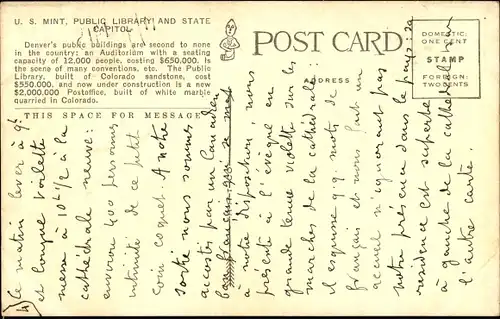 U. S. MINT, PUBLIC LIBRARY AND STATE
CAPITOL
Denver's public buildings are second to none
in the country: an Auditorium with a seating
capacity of 12,000 people, costing $650.000. Is
the scene of many conventions, etc. The Public
Library, built of Colorado sandstone, cost
$550.000. and now under construction is a new
$2.000.000 Postoffice, built of white marble
quarried in Colorado.
THIS SPACE FOR MESSAGE
POST CARD
ADDRESS
DOMESTIC:
ONE CENT
STAMP
FOREIGN:
TWO CENTS
4) Le matin lever à 9h
et longue toilette
messe à 10h 1/2 à la
cathédrale neuve:
environ 400 personnes
intimité de ce petit
coin coquet. A notre
sortie nous sommes
accostés par un Canadien
français qui se met
à notre disposition; nous
présente à l'évêque en
grande tenue violette sur les
marches de la cathédrale:
il esquisse q.q. mots de
français et nous fait un
accueil n'ignorant pas
notre présence dans le pays. Sa
résidence est superbe
à gauche de la cathédrale sur
l'autre carte.